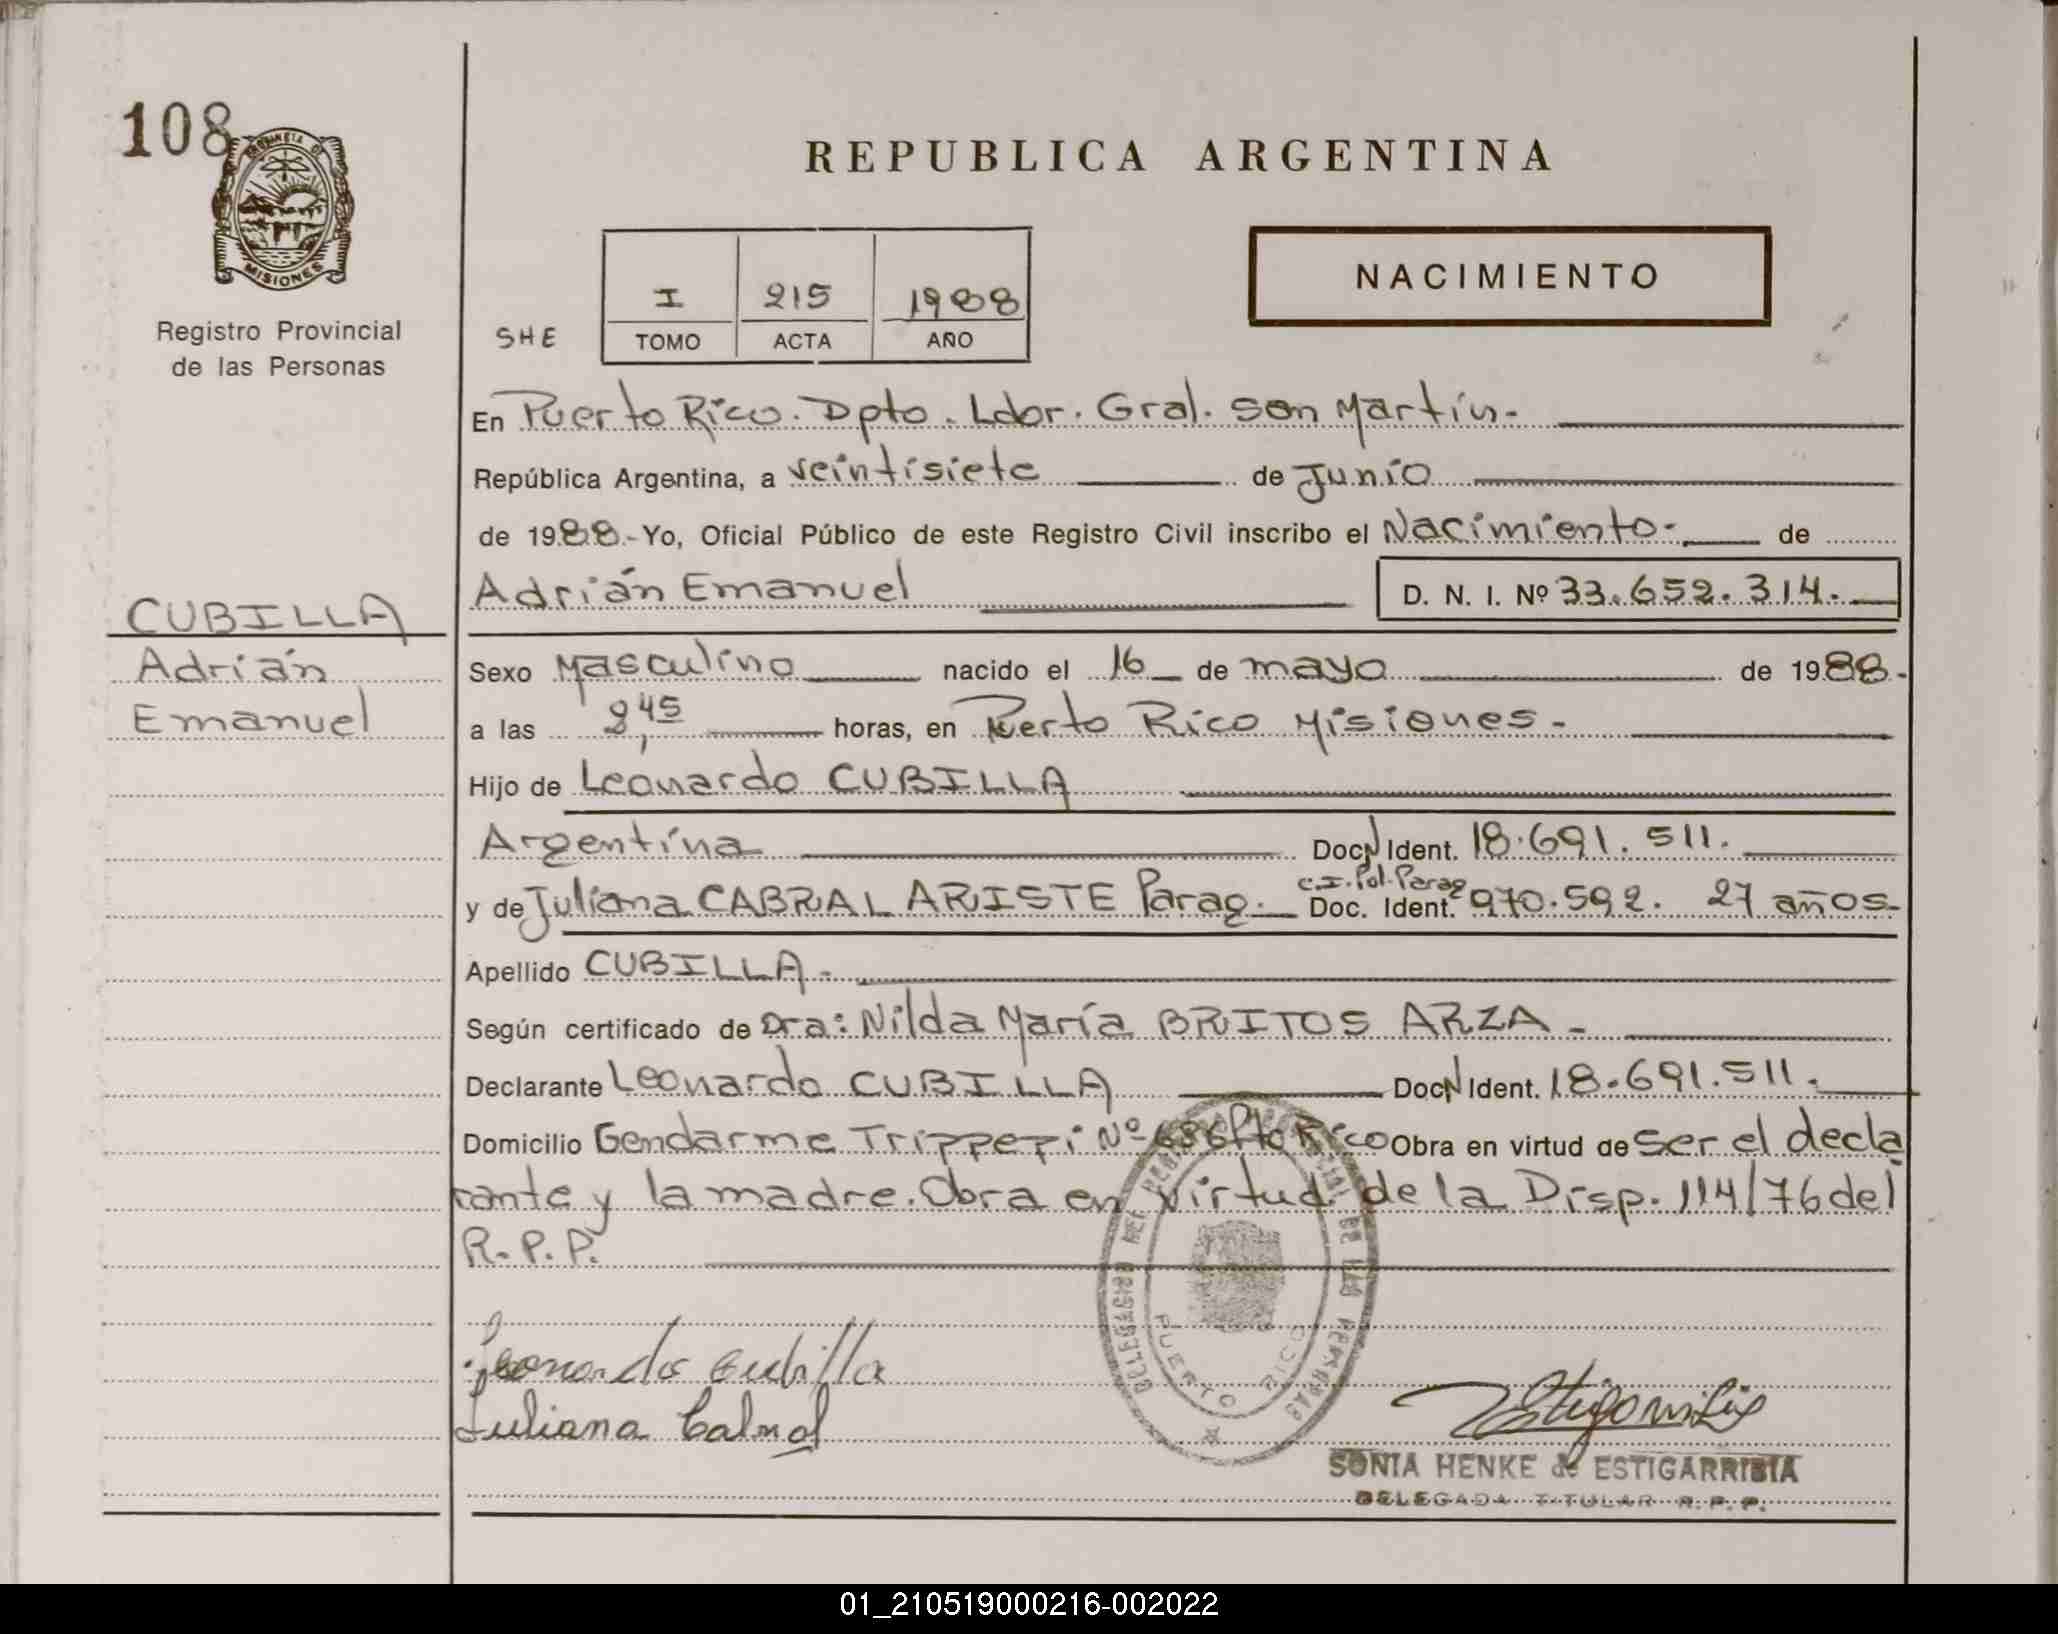 108
PROVINCIA DE
MISIONES
Registro Provincial
de las Personas
REPUBLICA ARGENTINA
NACIMIENTO
SHE
I 215 1988
TOMO ACTA AÑO
En Puerto Rico. Dpto. Ldor. Gral. San Martín.-
República Argentina, a veintisiete de Junio
de 1988.- Yo, Oficial Público de este Registro Civil inscribo el Nacimiento.- de
Adrián Emanuel D. N. I. Nº 33.652.314.
CUBILLA
Adrián
Emanuel
Sexo Masculino nacido el 16 de mayo de 1988.-
a las 8,45 horas, en Puerto Rico Misiones.-
Hijo de Leonardo CUBILLA
Argentina DocN Ident. 18.691.511.
c.I.Pol.Parag
y de Juliana CABRAL ARISTE Parag. Doc. Ident. 970.592. 27 años.
Apellido CUBILLA.-
Según certificado de Dra: Nilda María BRITOS ARZA.-
Declarante Leonardo CUBILLA DocN Ident. 18.691.511.
Domicilio Gendarme Trippepi Nº 686 Pto Rico Obra en virtud de ser el decla
rante y la madre. Obra en virtud de la Disp. 114/76 del
R.P.P.
PUERTO RICO
Leonardo Cubilla
Juliana Cabral
SONIA HENKE de ESTIGARRIBIA
DELEGADA TITULAR R.P.P.
01_210519000216-002022